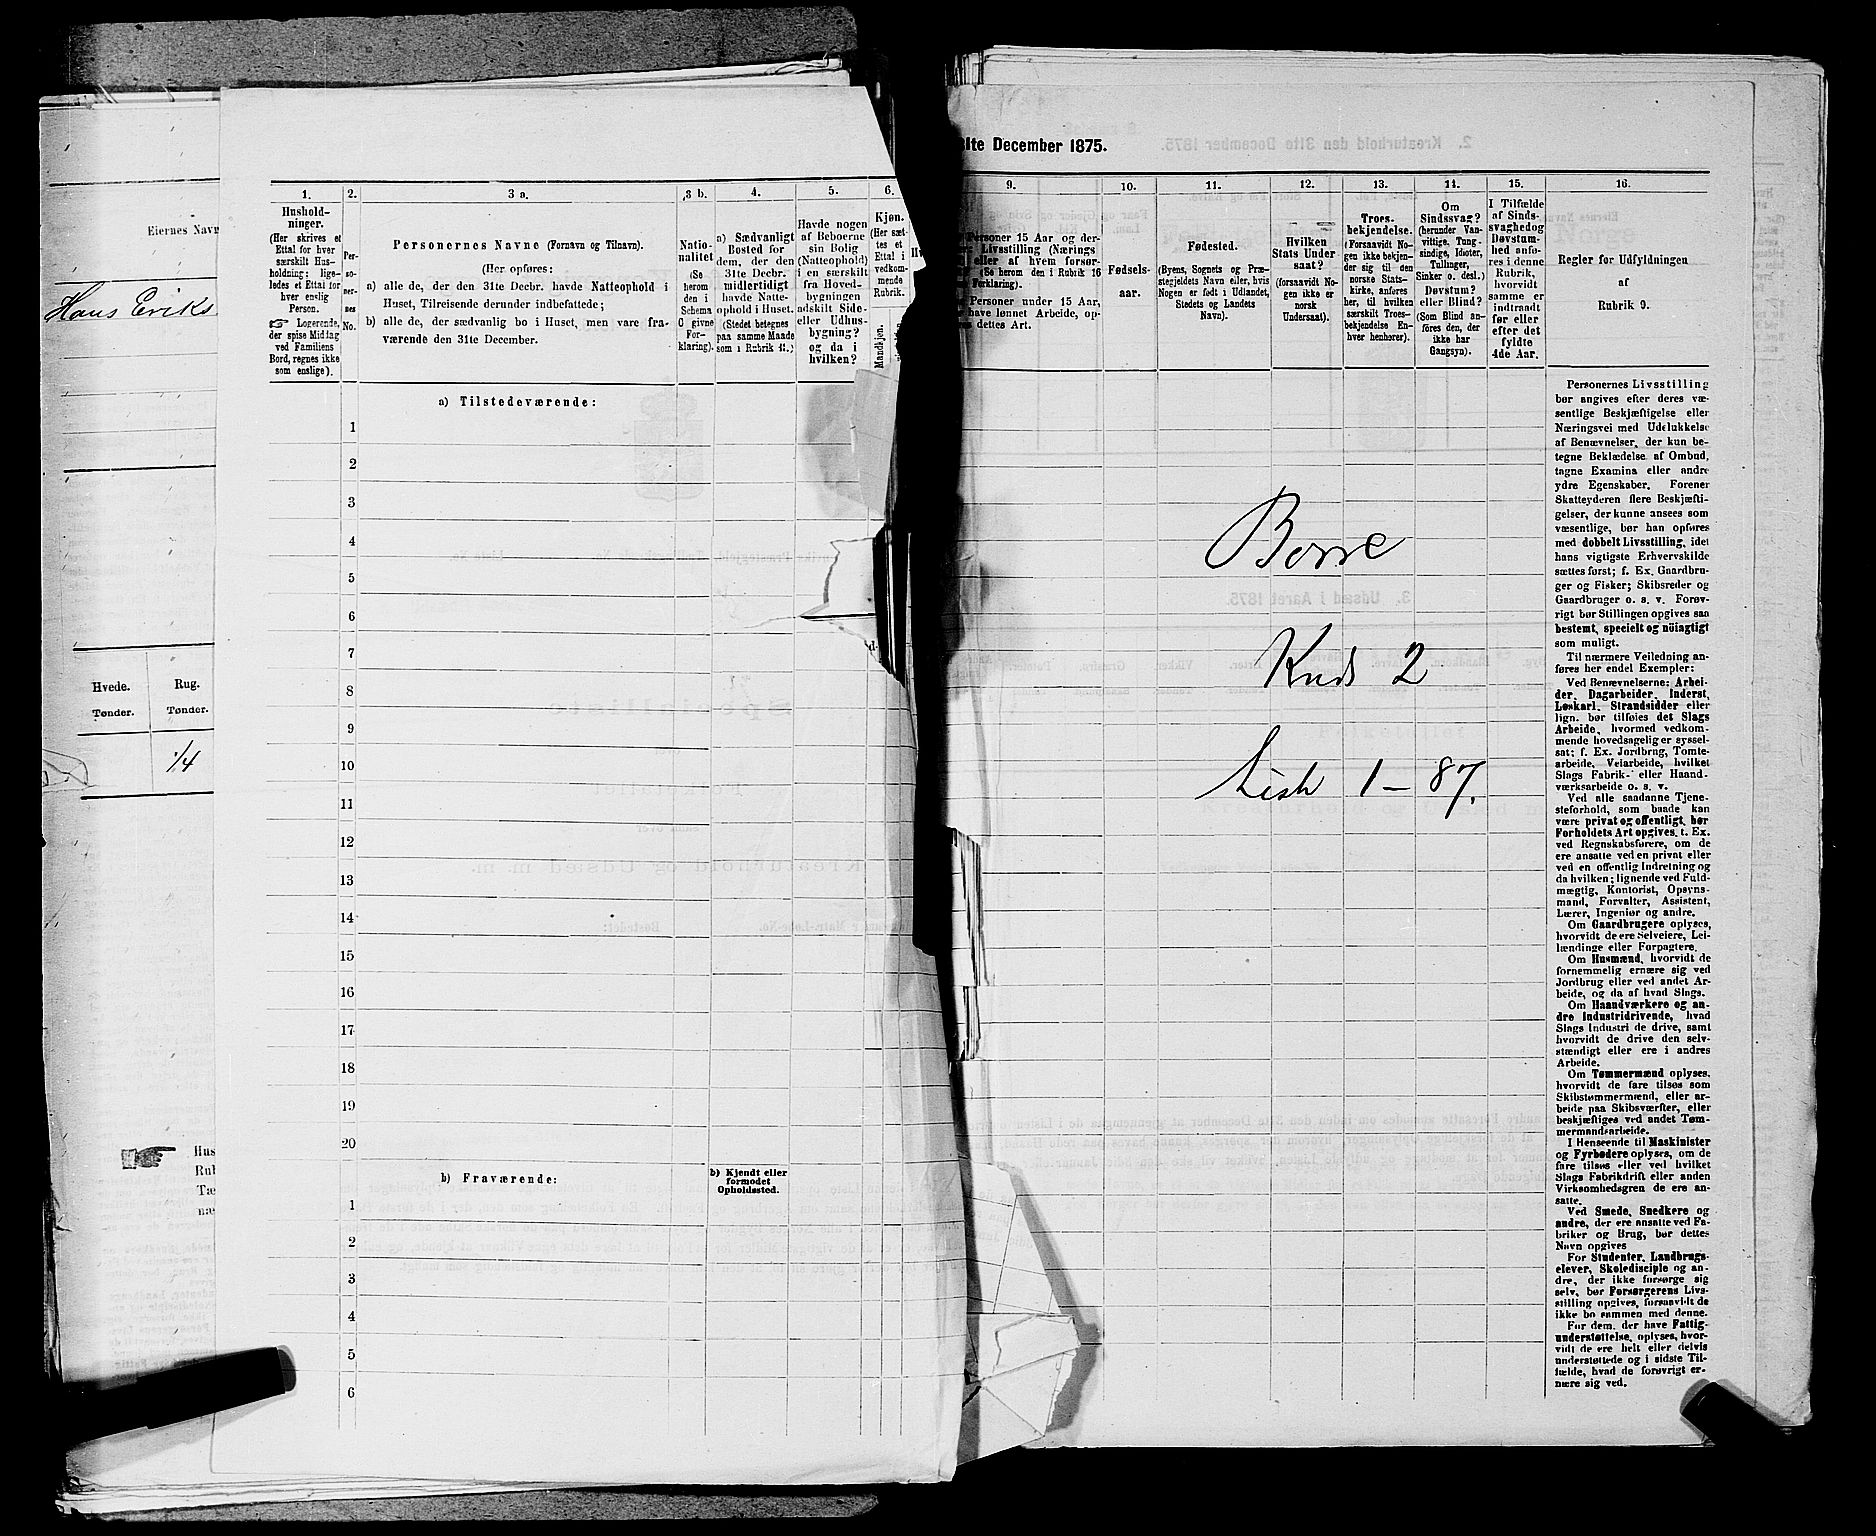 Eiernes Navn
Hans Eriks
Hvede.
Tønder.
Rug.
Tønder.
1/4
31te December 1875.
1.
Hushold-
ninger.
(Her skrives et
Ettal for hver
særskilt Hus-
holdning; lige-
ledes et Ettal for
hver enslig
Person.
☞ Logerende,
der spise Middag
ved Familiens
Bord, regnes ikke
som enslige).
2.
Per-
so-
ner-
nes
No.
3 a.
Personernes Navne (Fornavn og Tilnavn).
(Her opføres:
a) alle de, der den 31te Decbr. havde Natteophold i
Huset, Tilreisende derunder indbefattede;
b) alle de, der sædvanlig bo i Huset, men vare fra-
værende den 31te December.
3 b.
Natio-
nalitet
(Se
herom
den i
Schema
O givne
For-
klaring).
4.
a) Sædvanligt
Bosted for
dem, der den
31te Decbr.
midlertidigt
havde Natte-
ophold i Huset.
(Stedet betegnes
paa samme Maade
som i Rubrik 11.)
5.
Havde nogen
af Beboerne
sin Bolig
(Natteophold)
i en særskilt
fra Hoved-
bygningen
adskilt Side-
eller Udhus-
bygning?
og da i
hvilken?
6.
Kjøn.
(Her sæt-
tes et
Ettal i
vedkom-
mende
Rubrik.
Mandkjøn.
a) Tilstedeværende:
1
2
3
4
5
6
7
8
9
10
11
12
13
14
15
16
17
18
19
20
b) Fraværende:
b) Kjendt eller
formodet
Opholdssted.
1
2
3
4
5
6
9.
Personer 15 Aar og der-
Livsstilling (Nærings
eller af hvem forsør-
(Se herom den i Rubrik 16
Forklaring).
Personer under 15 Aar,
have lønnet Arbeide, op-
dettes Art.
10.
Fødsels-
aar.
11.
Fødested.
(Byens, Sognets og Præ-
stegjeldets Navn eller, hvis
Nogen er født i Udlandet,
Stedets og Landets
Navn).
12.
Hvilken
Stats Under
saat?
(forsaavidt No-
gen ikke er
norsk
Undersaat).
13.
Troes-
bekjendelse.
(Forsaavidt No-
gen ikke bekjen-
der sig til den
norske Stats-
kirke, anføres
her, til hvilken
særskilt Troes-
bekjendelse En-
hver henhører).
14.
Om
Sindssvag?
(herunder Van-
vittige, Tung-
sindige, Idioter,
Tullinger,
Sinker o. desl.)
Døvstum?
eller Blind?
(Som Blind an-
føres den, der
ikke har
Gangsyn).
15.
I Tilfælde
af Sinds-
svaghed og
Døvstum-
hed anfø-
res i denne
Rubrik,
hvorvidt
samme er
indtraadt
før eller
efter det
fyldte
4de Aar.
16.
Regler for Udfyldningen
af
Rubrik 9.
Borre
Kreds 2
Liste 1 – 87.
Personernes Livsstilling
bør angives efter deres væ-
sentlige Beskjæftigelse eller
Næringsvei med Udelukkelse
af Benævnelser, der kun be-
tegne Beklædelse af Ombud,
tagne Examina eller andre
ydre Egenskaber. Forener
Skatteyderen flere Beskjæfti-
gelser, der kunne ansees som
væsentlige, bør han opføres
med dobbelt Livsstilling, idet
hans vigtigste Erhvervskilde
sættes først; f. Ex. Gaardbru-
ger og Fisker; Skibsreder og
Gaardbruger o. s. v. Forøv-
rigt bør Stillingen opgives saa
bestemt, specielt og nöiagtigt
som muligt.
Til nærmere Veiledning an-
føres her endel Exempler:
Ved Benævnelserne: Arbei-
der, Dagarbeider, Inderst,
Løskarl, Strandsidder eller
lign. bør tilføies det Slags
Arbeide, hvormed vedkom-
mende hovedsagelig er syssel-
sat; f. Ex. Jordbrug, Tomte-
arbeide, Veiarbeide, hvilket
Slags Fabrik- eller Haand-
værksarbeide o. s. v.
Ved alle saadanne Tjene-
steforhold, som baade kan
være privat og offentligt, bør
Forholdets Art opgives, t. Ex.
ved Regnskabsførere, om de
ere ansatte ved en privat eller
ved en offentlig Indretning og
da hvilken; lignende ved Fuld-
mægtig, Kontorist, Opsyns-
mand, Forvalter, Assistent,
Lærer, Ingeniør og andre.
Om Gaardbrugere oplyses,
hvorvidt de ere Selveiere, Lei-
lændinge eller Forpagtere.
Om Husmænd, hvorvidt de
fornemmelig ernære sig ved
Jordbrug eller ved andet Ar-
beide, og da af hvad Slags.
Om Haandværkere og an-
dre Industridrivende, hvad
Slags Industri de drive, samt
hvorvidt de drive den selv-
stændigt eller ere i andres
Arbeide.
Om Tømmermænd oplyses,
hvorvidt de fare tilsøs som
Skibstømmermænd, eller ar-
beide paa Skibsværfter, eller
beskjæftiges ved andet Tøm-
mermandsarbeide.
I Henseende til Maskinister
og Fyrbødere oplyses, om de
fare tilsøs eller ved hvilket
Slags Fabrikdrift eller anden
Virksomhedsgren de ere an-
satte.
Ved Smede, Snedkere og
andre, der ere ansatte ved Fa-
briker og Brug, bør dettes
Navn opgives
For Studenter, Landbrugs-
elever, Skoledisciple og an-
dre, der ikke forsørge sig
selv, bør Forsørgerens Livs-
stilling opgives, forsaavidt de
ikke bo sammen med denne.
For dem, der have Fattig-
understøttelse, oplyses, hvor-
vidt de ere helt eller delvis
understøttede og i sidste Til-
fælde, hvad de forøvrigt er-
nære sig ved.